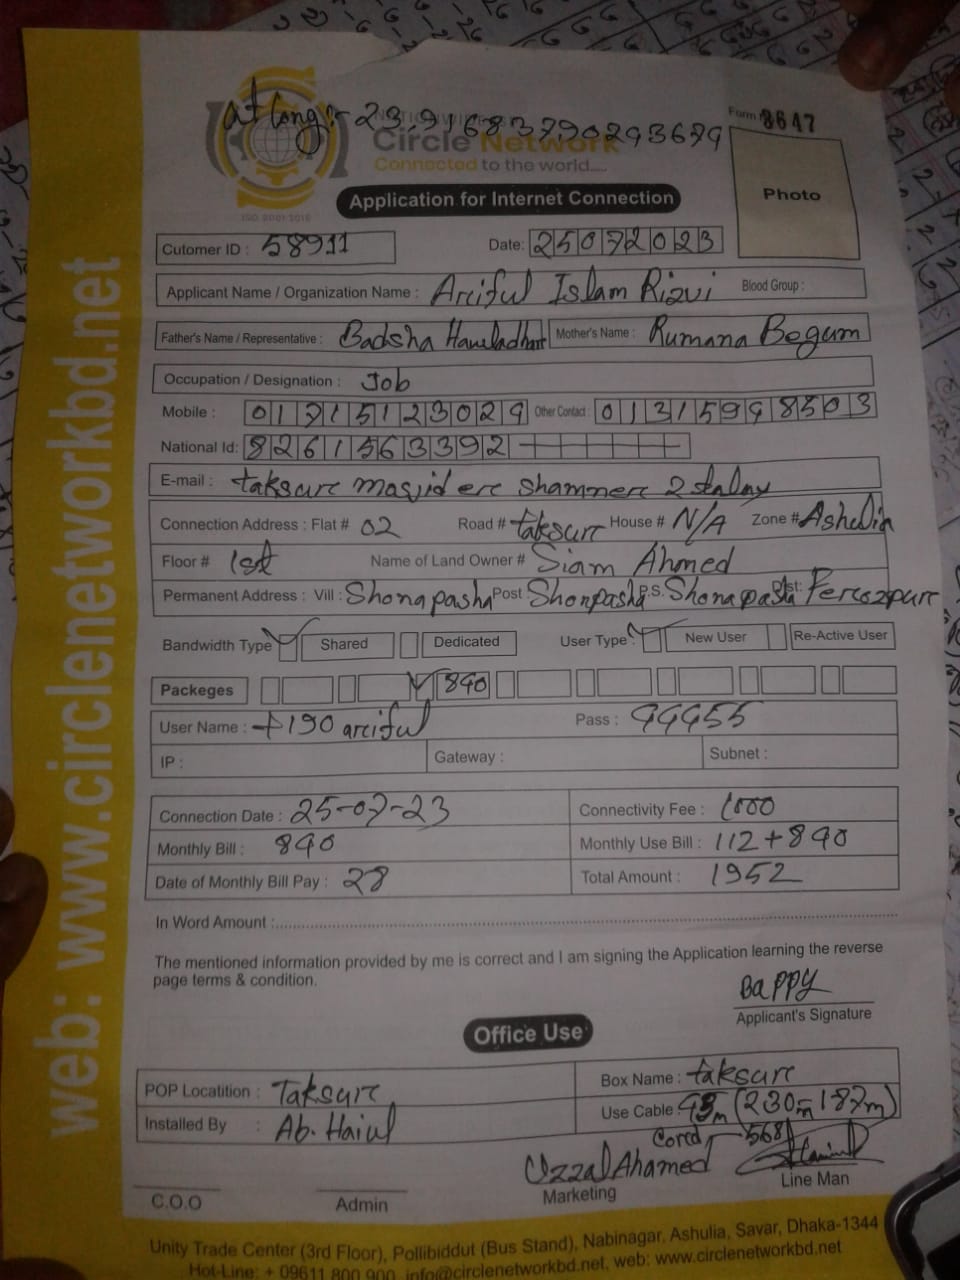 at Long:- 23.91683790293679
Form 8647
Circle Network
Connected to the world....
ISO 9001:2015
Photo
Application for Internet Connection
Cutomer ID : 58911 Date: 25072023
Applicant Name / Organization Name : Ariful Islam Rizvi Blood Group :
Father's Name / Representative : Badsha Mother's Name : Rumana Begum
Occupation / Designation : Job
Mobile : 01715123029 Other Contact : 01315998503
National Id: 8261563392
E-mail : taksur masjid er shamner 2 talay
Connection Address : Flat # 02 Road # taksur House # N/A Zone # Ashulia
Floor # 1st Name of Land Owner # Siam Ahmed
Permanent Address : Vill : Shonapasha Post Shonpasha P.S. Shonapasha Dist: Perozpur
Bandwidth Type Shared Dedicated User Type New User Re-Active User
Packeges 840
User Name : +190 ariful Pass : 99955
IP : Gateway : Subnet :
Connection Date : 25-07-23 Connectivity Fee : 1000
Monthly Bill : 840 Monthly Use Bill : 112+840
Date of Monthly Bill Pay : 28 Total Amount : 1952
In Word Amount :
The mentioned information provided by me is correct and I am signing the Application learning the reverse
page terms & condition.
Bappy
Applicant's Signature
Office Use
POP Locatition : Taksur Box Name : taksur
Installed By : Ab. Haiul Use Cable : 43m (230m-187m)
Cored 568
Uzzal Ahamed
C.O.O Admin Marketing Line Man
Unity Trade Center (3rd Floor), Pollibiddut (Bus Stand), Nabinagar, Ashulia, Savar, Dhaka-1344
Hot-Line: + 09611 800 900, info@circlenetworkbd.net, web: www.circlenetworkbd.net
web: www.circlenetworkbd.net